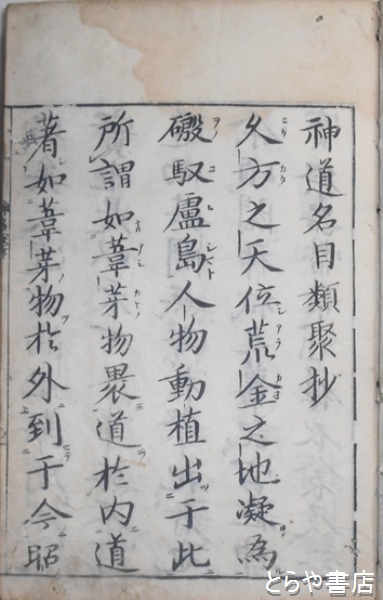 神道名目類聚抄
久方之天位荒金之地凝為
磤馭盧島人物動植出于此
所謂如葦芽物畏道於内道
著如葦芽物於外到于今昭
とらや書店